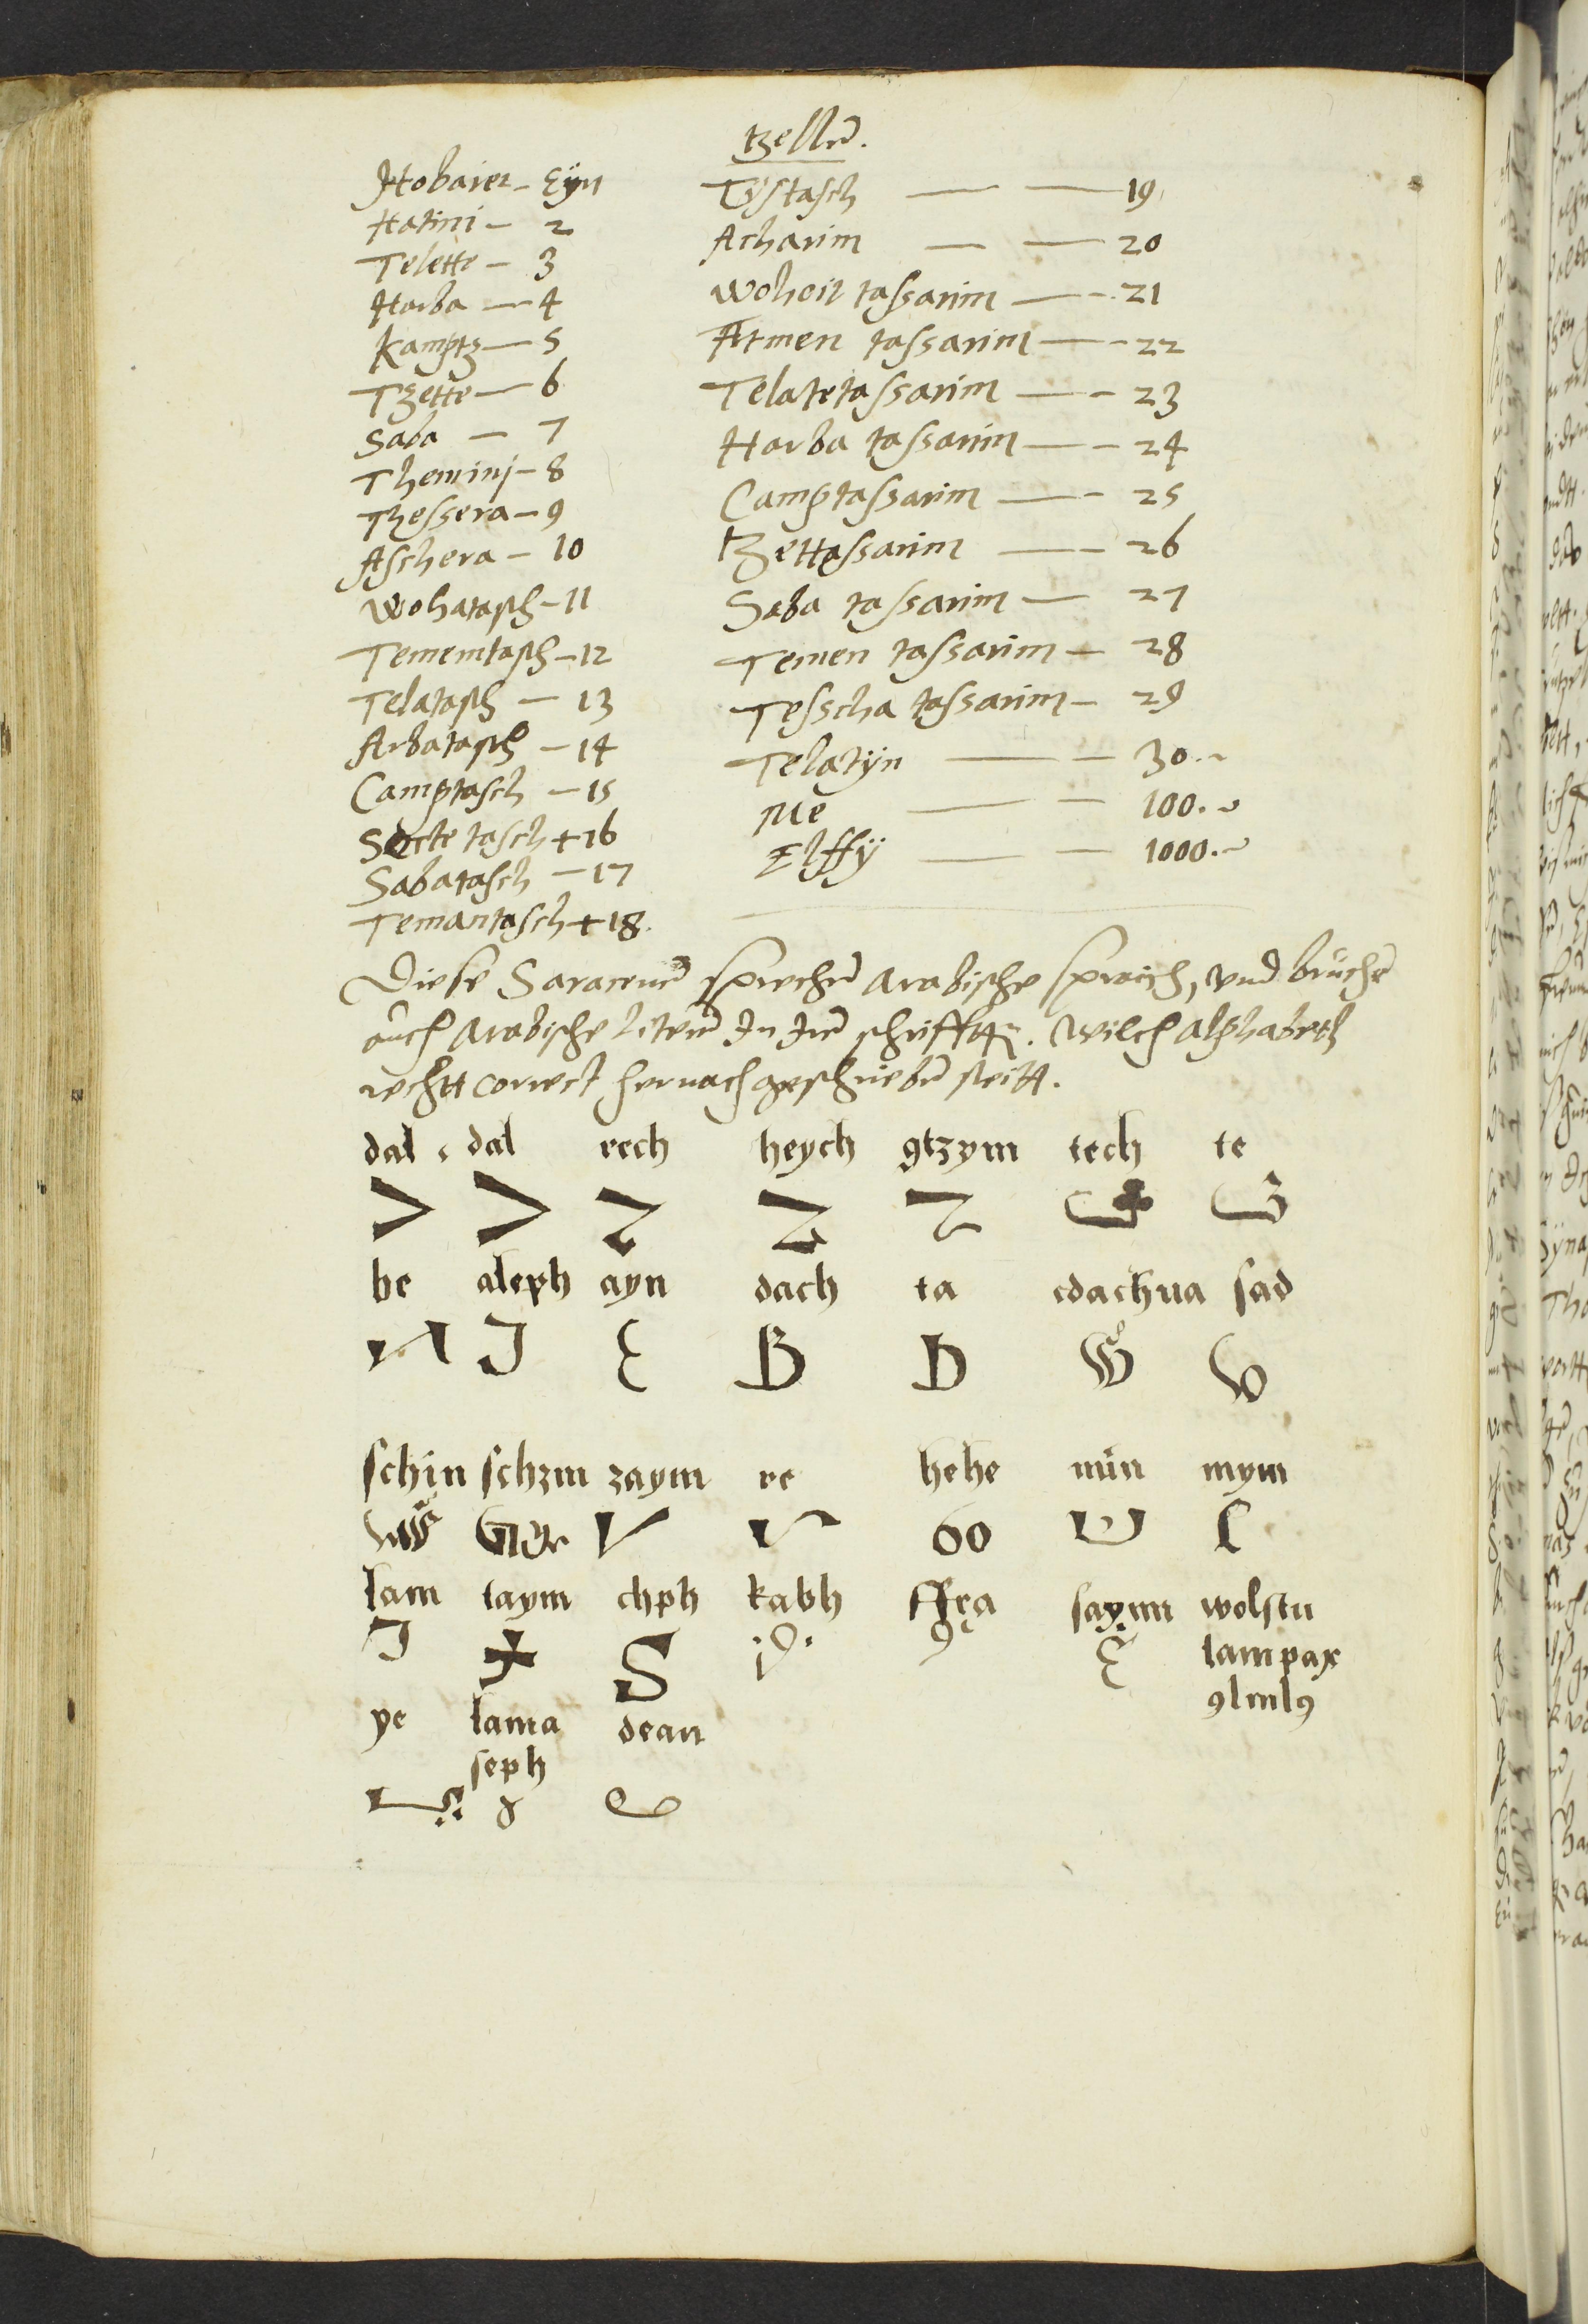 tzellen.
Hobaiet - Eyn
Hatini - 2
Telette - 3
Harba - 4
Kamptz - 5
Tzette - 6
Saba - 7
Themini - 8
Thessera - 9
Aschera - 10
Wohatasch - 11
Tememtasch - 12
Telatasch - 13
Arbatasch - 14
Camptasch - 15
Sectetasch + 16
Sabatasch - 17
Temantasch + 18.
Tÿstasch — — 19
Acharim — — 20
Wohoit tassarim — - 21
Atmen tassarim — - 22
Telatetassarim — - 23
Harba tassarim — - 24
Camptassarim — - 25
tzettassarim — - 26
Saba tassarim — 27
Temen tassarim — 28
Tesscha tassarim - 29
Telatÿn — - 30.
Me — - 100.
Elffÿ — - 1000.
Diese Saracenen sprechen Arabische sprach, und bruchen
auch Arabische literen In Iren schrifften. Wilch alphabeth
rechtt correct hernach geschrieben steitt.
dal dal rech heych gtzym tech te
be aleph ayn dach ta cdachua sad
schin schzm zaym re hehe nün mym
lam taym chph kabh ffea saynn wolstu
lampax
9lml9
ye lama dean
seph